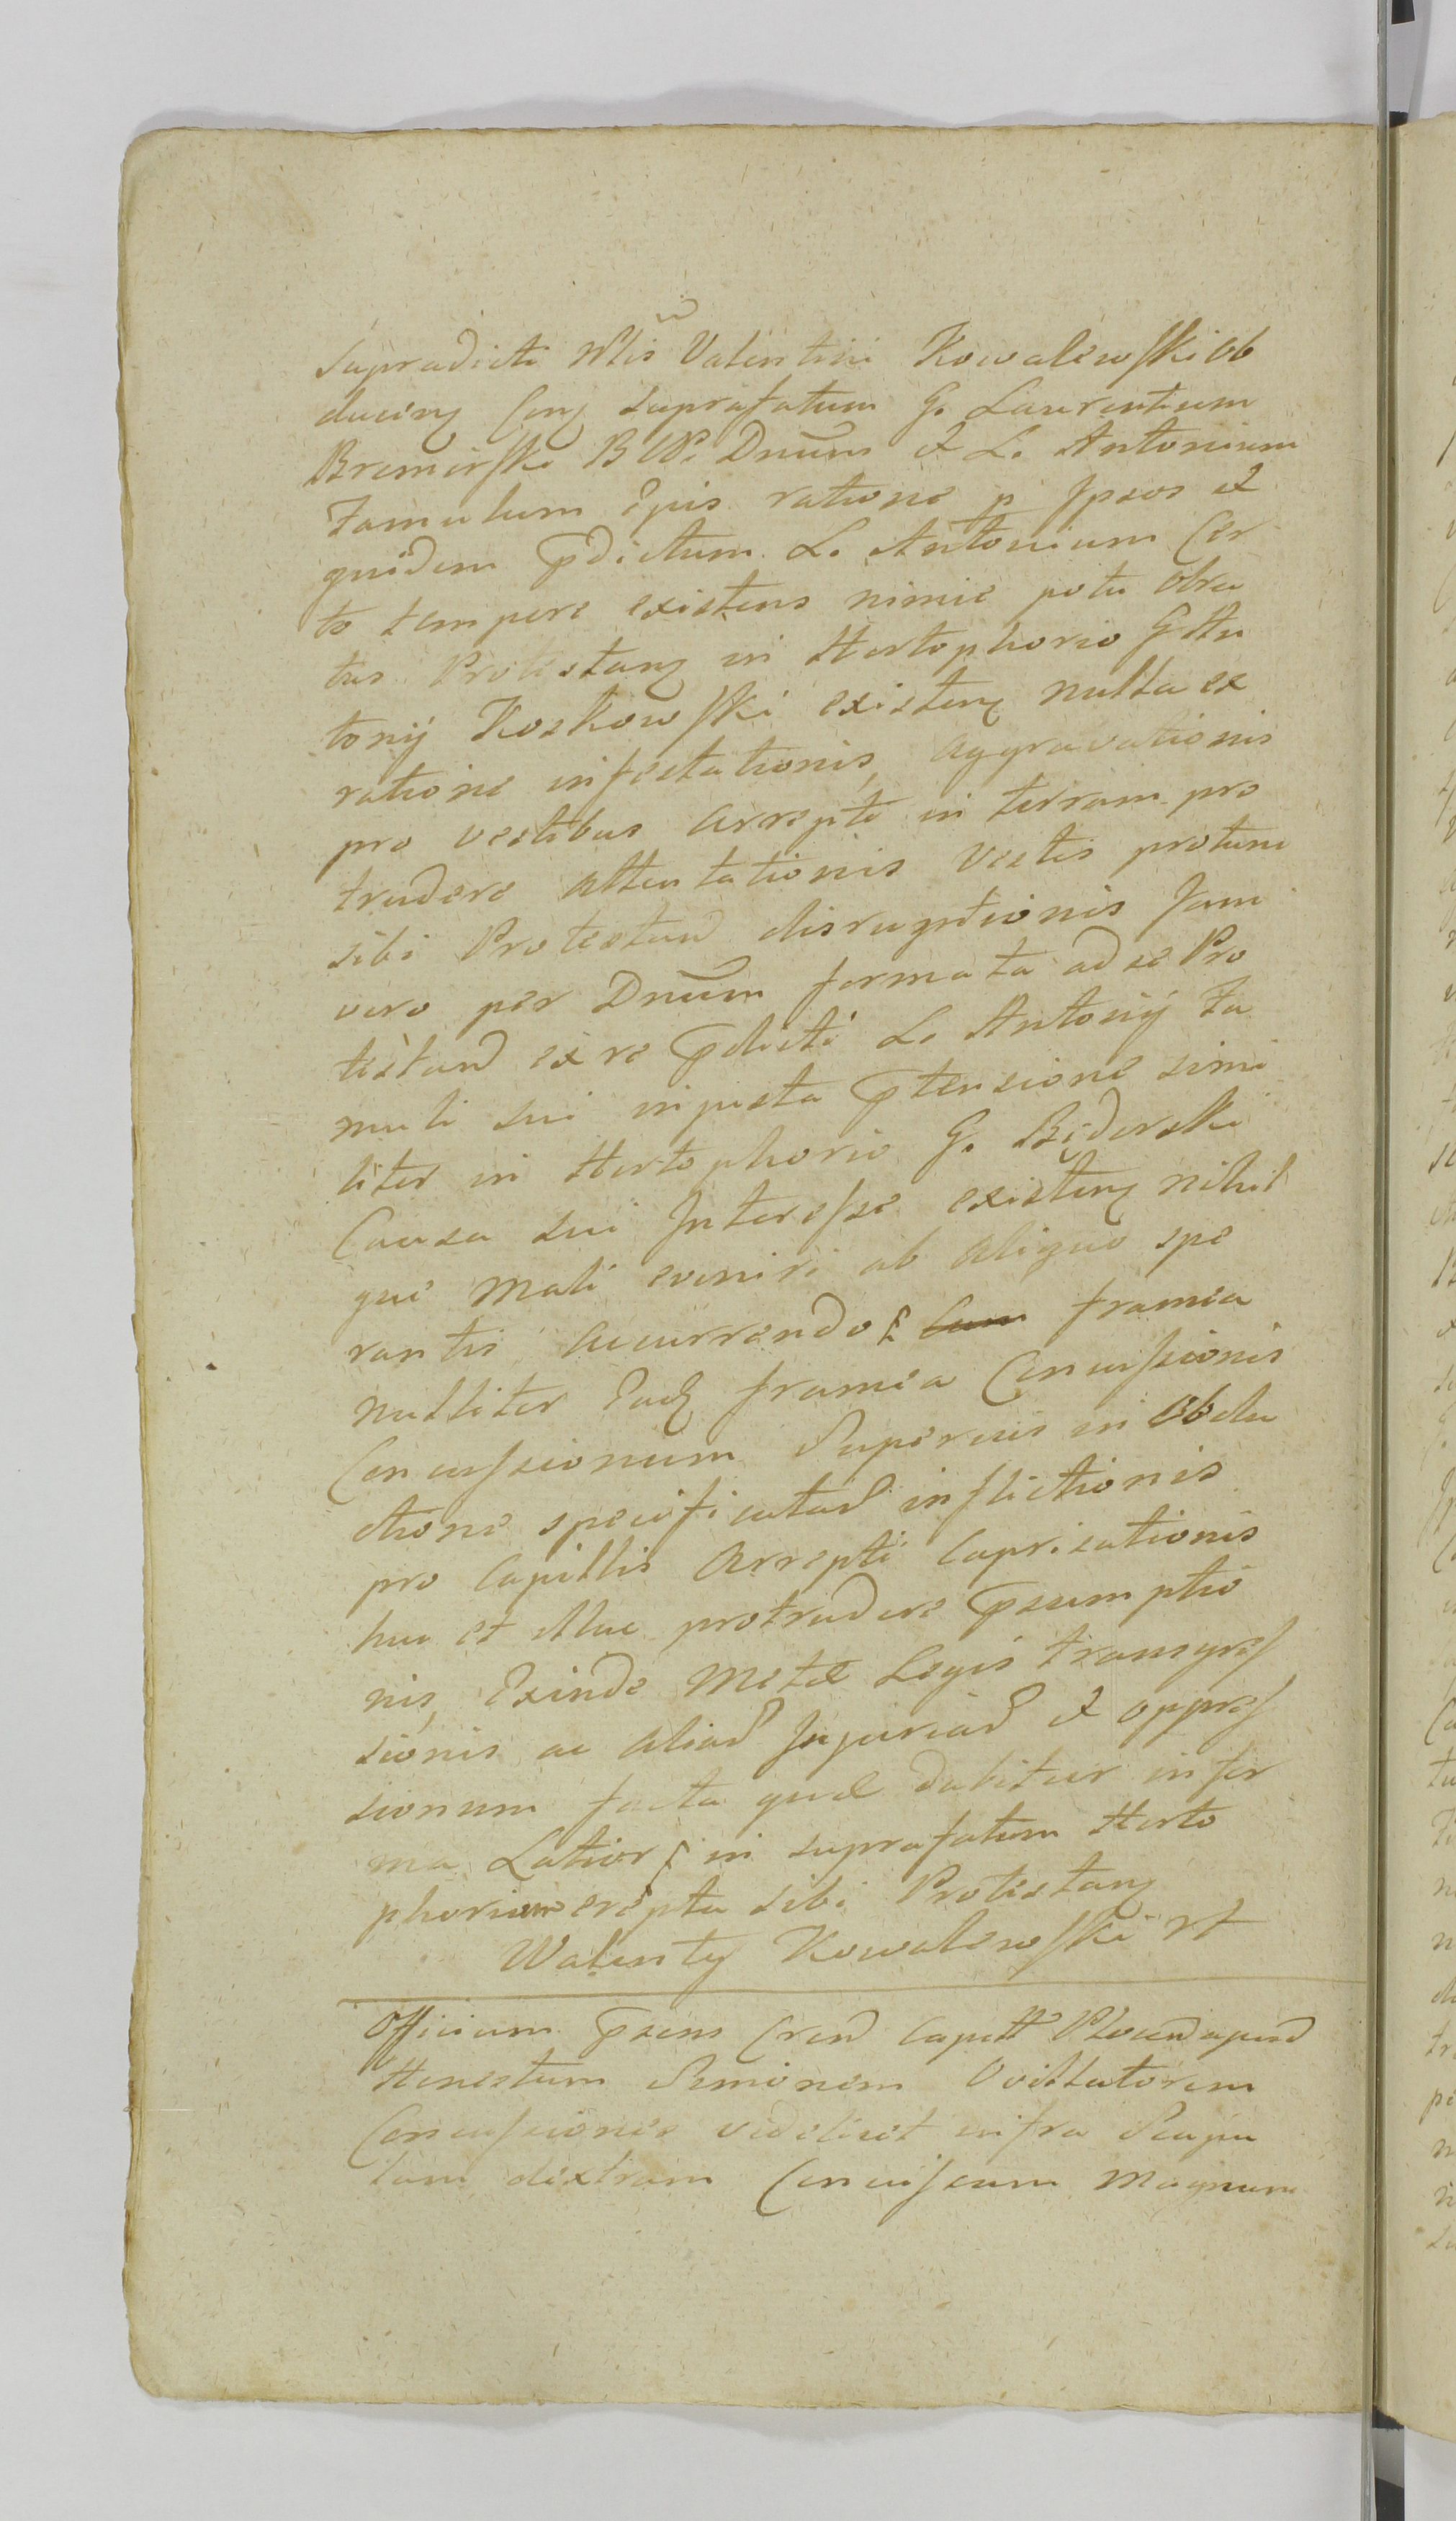 supradicti Nlis Valentini Kowalewski ob
ducens Cony suprafatum G. Laurentium
Bremirski B W P. Dnum et L. Antonium
Famulum Ejus ratione p Ipsos et
quidem Pdictum L. Antonium Cer
to tempore existens nimie potu obru
tus Protestans in Hortophorio G An
tonij Koskowski existens nulla ex
ratione infestationis, aggravationis
pro vestibus arrepti in terram pro
trudere attentationis Vestis protunc
sibi Protestand disruptionis Jam
vero per Dnum formata ad se Pro
testand ex re Pdicti L. Antonij Fa
muli sui injusta Ptensione simi
liter in Hortophorio G.
Causa sui Interesse existens nihil
que mali eveniri ab aliquo spe
rantis accurrendo Cum framea
nulliter Eadq framea Concussionis
Concussionum Superius in Obdu
ctione specificatar inflictionis
pro Capillis arrepti Caprisationis
huc et illuc protrudere Psumptio
nis, Exinde Metae Legis transgres
sionis ac aliar Injuriar et oppres
sionum facta quae dabitur in for
ma Latiori in suprafatum Horto
phorium erepta sibi Protestans
Walenty Kowalewski
Officium Psens Crend Capitt
Honestum Simonem
Concussiones videlicet infra Scapu
lam dextram Concussum Magnum